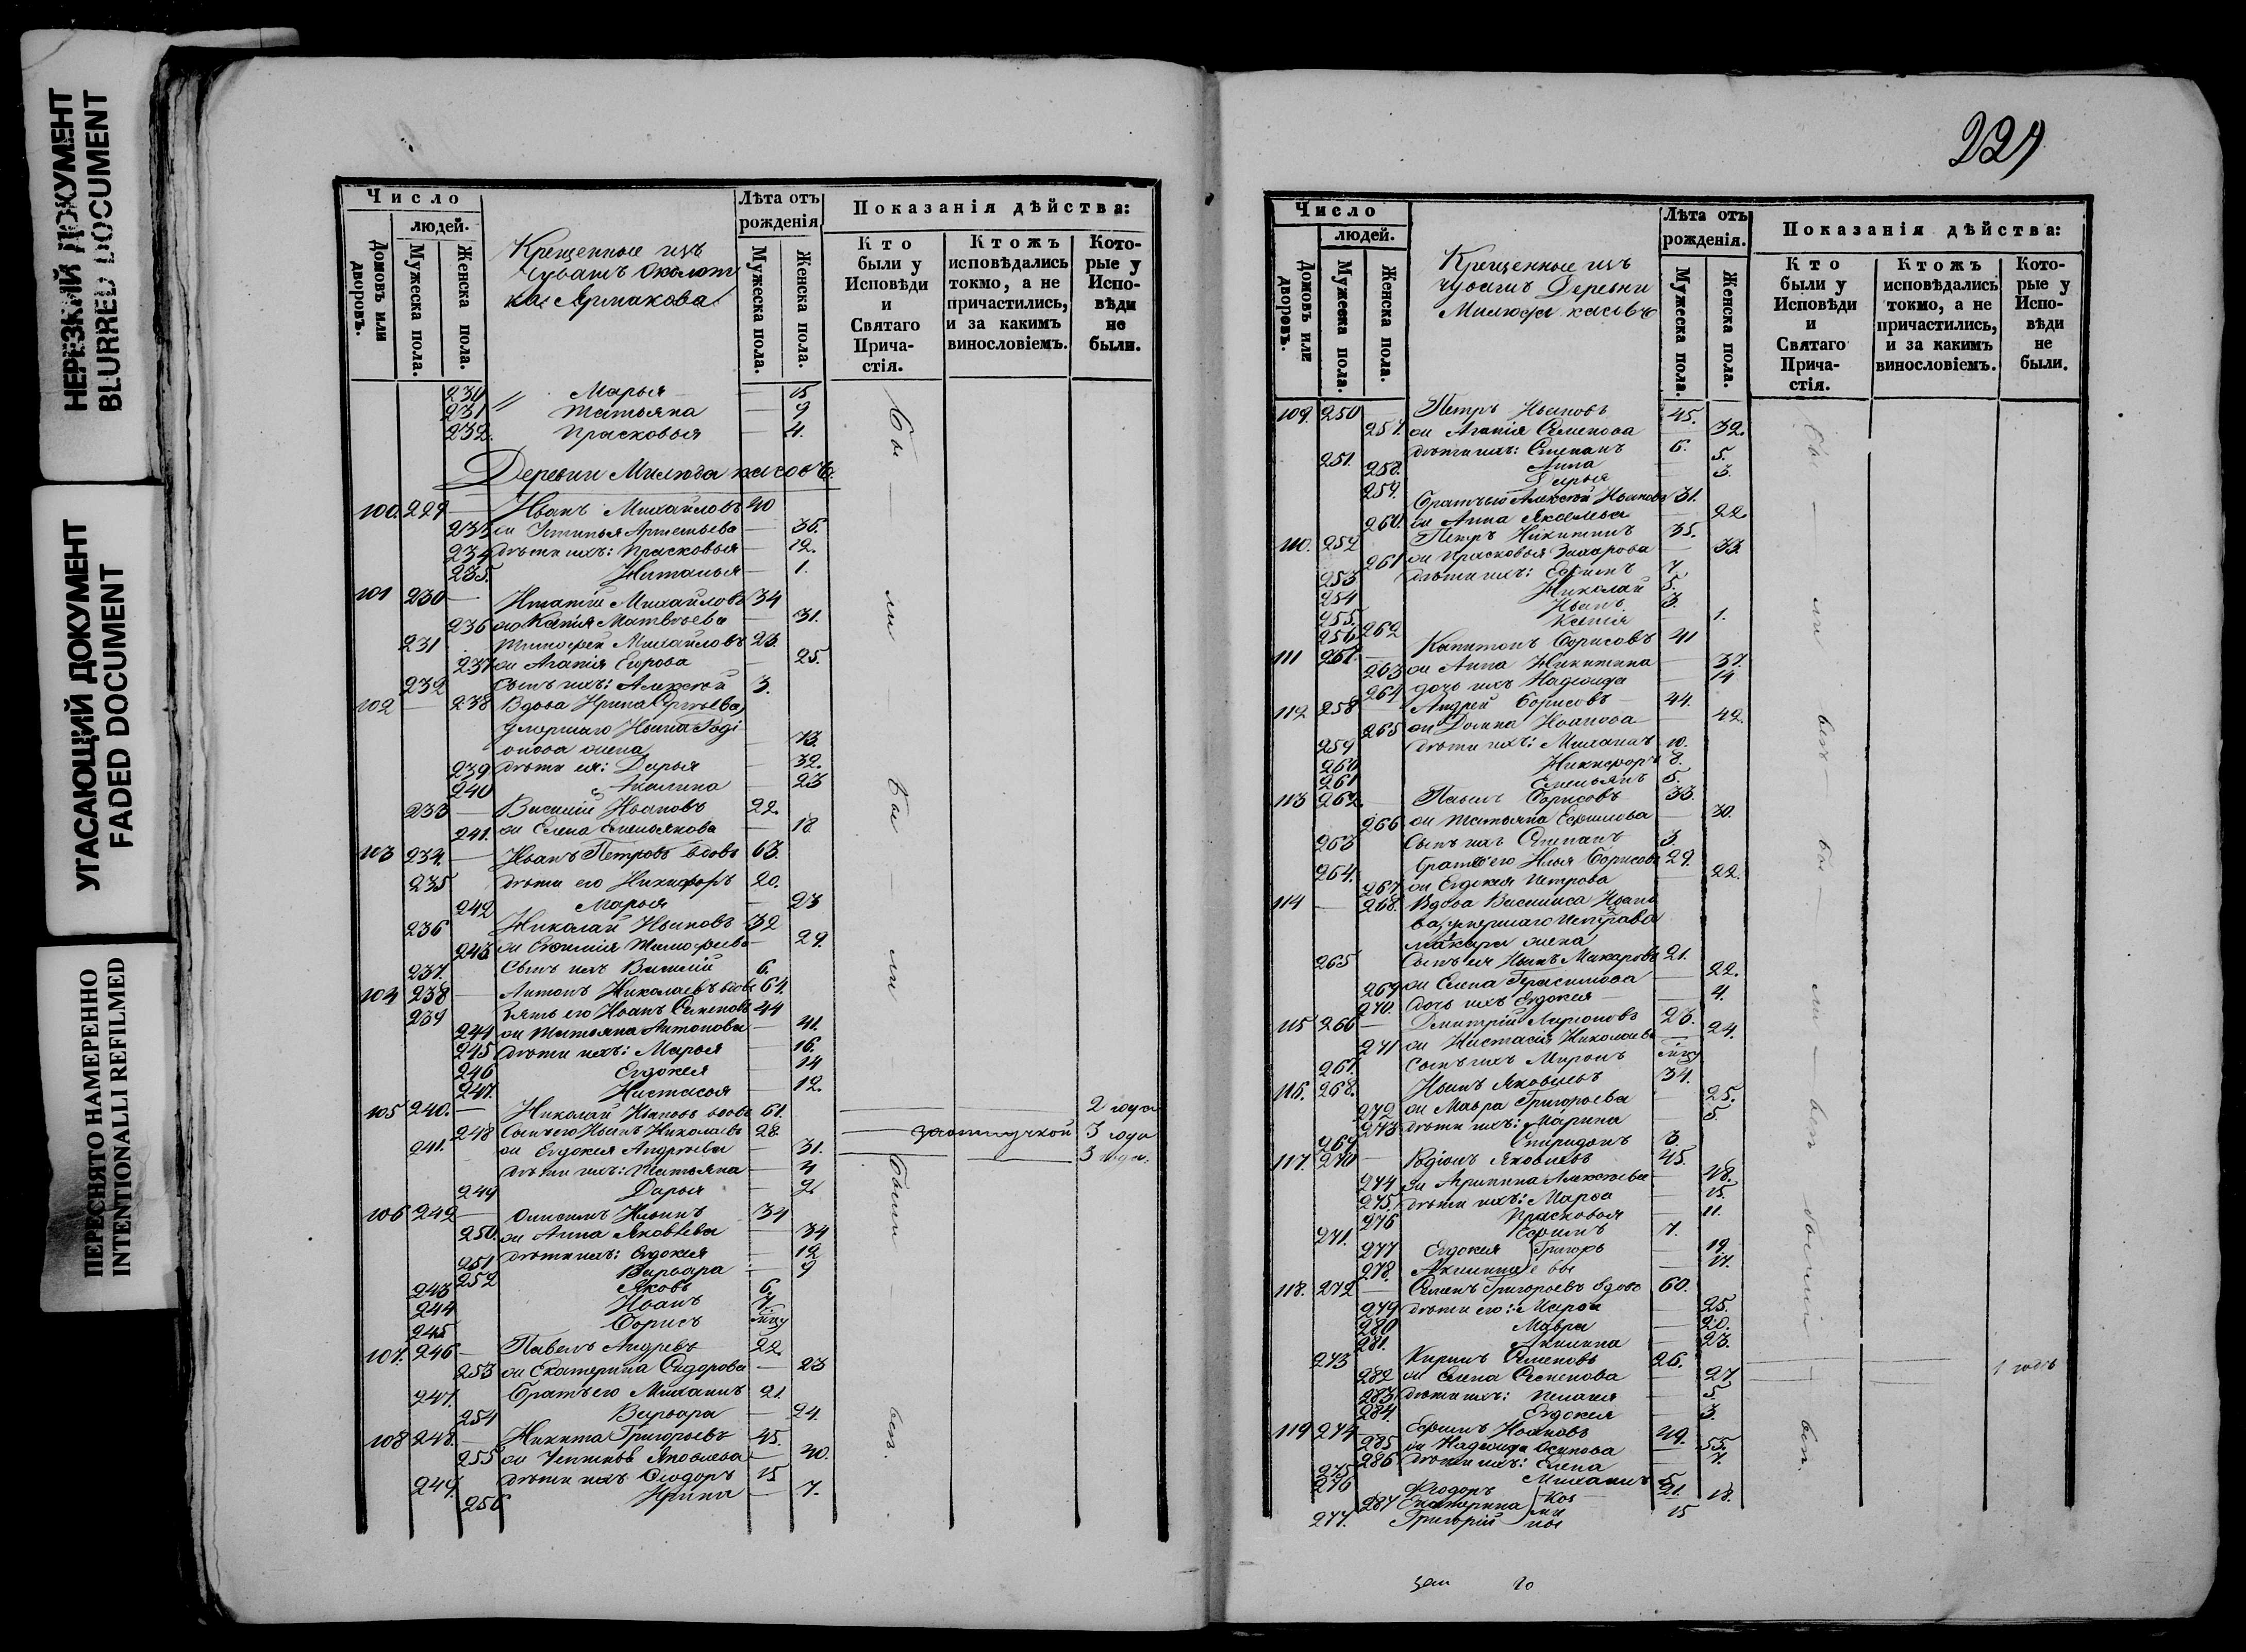 НЕРЕЗКИЙ ДОКУМЕНТ
BLURRED DOCUMENT
УГАСАЮЩИЙ ДОКУМЕНТ
FADED DOCUMENT
ПЕРЕСНЯТО НАМЕРЕННО
INTENTIONALLI REFILMED
Число
людей.
Домовъ или дворовъ.
Мужеска пола.
Женска пола.
Крещенные изъ
Чувашъ Околот
ка Ярмакова
Лѣта отъ рожденія
Мужеска пола.
Женска пола.
Показанія дѣйства:
Кто были у Исповѣди и Святаго Прича-стія.
Ктожъ исповѣдались токмо, а не причастились, и за какимъ винословіемъ.
Кото-рые у Испо-вѣди не были.
230 " Марья — 15
231 Татьяна — 9
232. Прасковья — 4.
Деревни Милюдакасовъ.
100. 229 — Иванъ Михайловъ 40
233 ж Устинья Артемьева — 36.
234 дѣти ихъ: Прасковья — 12.
235. Наталья — 1.
101 230 — Игнатій Михайловъ 34
236 ж Ксенія Матвѣева — 31.
231 Тимофей Михайловъ 26.
237 ж Агапія Егорова — 25.
232 Сынъ ихъ: Алексѣй 3.
102 — 238 Вдова Ирина Сергѣева,
умершаго Ивана Роді
онова жена — 73.
239 дѣти ея: Дарья — 32.
240 Акилина — 23
233 — Василій Ивановъ 22.
241. ж Елена Емельянова — 18
103 234. — Иванъ Петровъ вдовъ 63.
235 дѣти его Никифоръ 20.
242 Марья — 23
236 Николай Ивановъ 32
243 ж Евфимія Тимофеева — 29.
237. Сынъ ихъ Василій 6.
104 238 — Антонъ Николаевъ вдовъ 64.
239 Зять его Иванъ Семеновъ 44
244 ж Татьяна Антонова — 41.
245 дѣти ихъ: Марья — 16.
246 Евдокія — 14
247. Настасья — 12.
105 240. — Николай Ивановъ вдовъ 61. 2 года
248 Сынъ его Иванъ Николаевъ 28. за отлучкой 3 года
241. ж Евдокія Андреева — 31. 3 года.
дѣти ихъ: Татьяна — 4
249 Дарья — 2
106 242 — Онисимъ Ильинъ 34
250. ж Анна Яковлева — 34
251 дѣти ихъ: Евдокія — 12
252 Варвара — 9
243 Яковъ 6.
244 Иванъ 4.
245 Борисъ
107. 246 — Павелъ Андревъ 22.
253 ж Екатерина Сидорова — 23
247. Братъ его Михаилъ 21.
254 Варвара — 24.
108 248. — Никита Григорьевъ 45.
255 ж Яковлева — 40.
249. дѣти ихъ Ѳеодоръ 15
256 Ирина — 7.
Бы — ли — бы — ли — были — вси.
Число
людей.
Домовъ или дворовъ.
Мужеска пола.
Женска пола.
Крещенные изъ
Чувашъ Деревни
Милюдакасовъ
Лѣта отъ рожденія.
Мужеска пола.
Женска пола.
Показанія дѣйства:
Кто были у Исповѣди и Святаго Прича-стія.
Ктожъ исповѣдались токмо, а не причастились, и за какимъ винословіемъ.
Кото-рые у Испо-вѣди не были.
109. 250 Петръ Ивановъ 45.
257. ж Агапія Семенова — 32.
251. дѣти ихъ: Степанъ 6.
258. Анна — 5.
259. Дарья — 3.
Братъ его Алексѣй Ивановъ 31.
260. ж Анна Яковлева — 22.
110. 252 Петръ Никитинъ 35.
261 ж Прасковья Захарова — 33.
253 дѣти ихъ: Ефимъ 7.
254 Николай 5.
255. Иванъ 3.
256. 262 Ксенія — 1.
111 257. — Капитонъ Борисовъ 41
263 ж Анна Никитина — 37.
264 дочь ихъ Надежда — 14
112 258 Андрей Борисовъ — 44.
265 ж Домна Иванова — 42.
259 дѣти ихъ: Михаилъ 10.
260 Никифоръ 8.
261 Емельянъ 5.
113 262. — Павелъ Борисовъ 33.
266 ж Татьяна Ефимова — 30.
263 Сынъ ихъ Степанъ 3.
264. Братъ его Илья Борисовъ 29.
267 ж Евдокія Петрова — 22.
114 — 268. Вдова Василиса Ивано
ва, умершаго Петрова
Макара жена
265 Сынъ ея Иванъ Макаровъ 21.
269 ж Елена Герасимова — 22.
270. дочь ихъ Евдокія — 4.
115 266 — Дмитрій Ларіоновъ 26.
271 ж Настасія Николаева — 24.
267. Сынъ ихъ Миронъ
116. 268. Иванъ Яковлевъ 34.
272 ж Мавра Григорьева — 25.
273 дѣти ихъ: Марина — 5.
269 Спиридонъ 3.
117. 270 — Родіонъ Яковлевъ 45.
274 ж Агрипина Алексѣева — 48.
275. дѣти ихъ: Марѳа — 15.
276 Прасковья — 11.
271. Ефимъ 7.
277 Евдокія } Григорь — 19.
278. Акилина } евы — 17.
118. 272 — Семенъ Григорьевъ вдовъ 60.
279 дѣти его: Марѳа — 25.
280 Мавра — 20.
281. Акилина — 23.
273 Кирилъ Семеновъ 26. 1 годъ
282 ж Елена Степанова — 27.
283 дѣти ихъ: Пелагія — 5.
284. Евдокія — 3.
119 274 — Ефимъ Ивановъ 49.
285 ж Надежда Осипова — 55.
286 дѣти ихъ: Елена — 7.
275 Михаилъ 5.
276 Ѳеодоръ 21.
287 Екатерина — 18.
277. Григорій 15
Бы — ли — вси — бы — ли — вси были — вси.